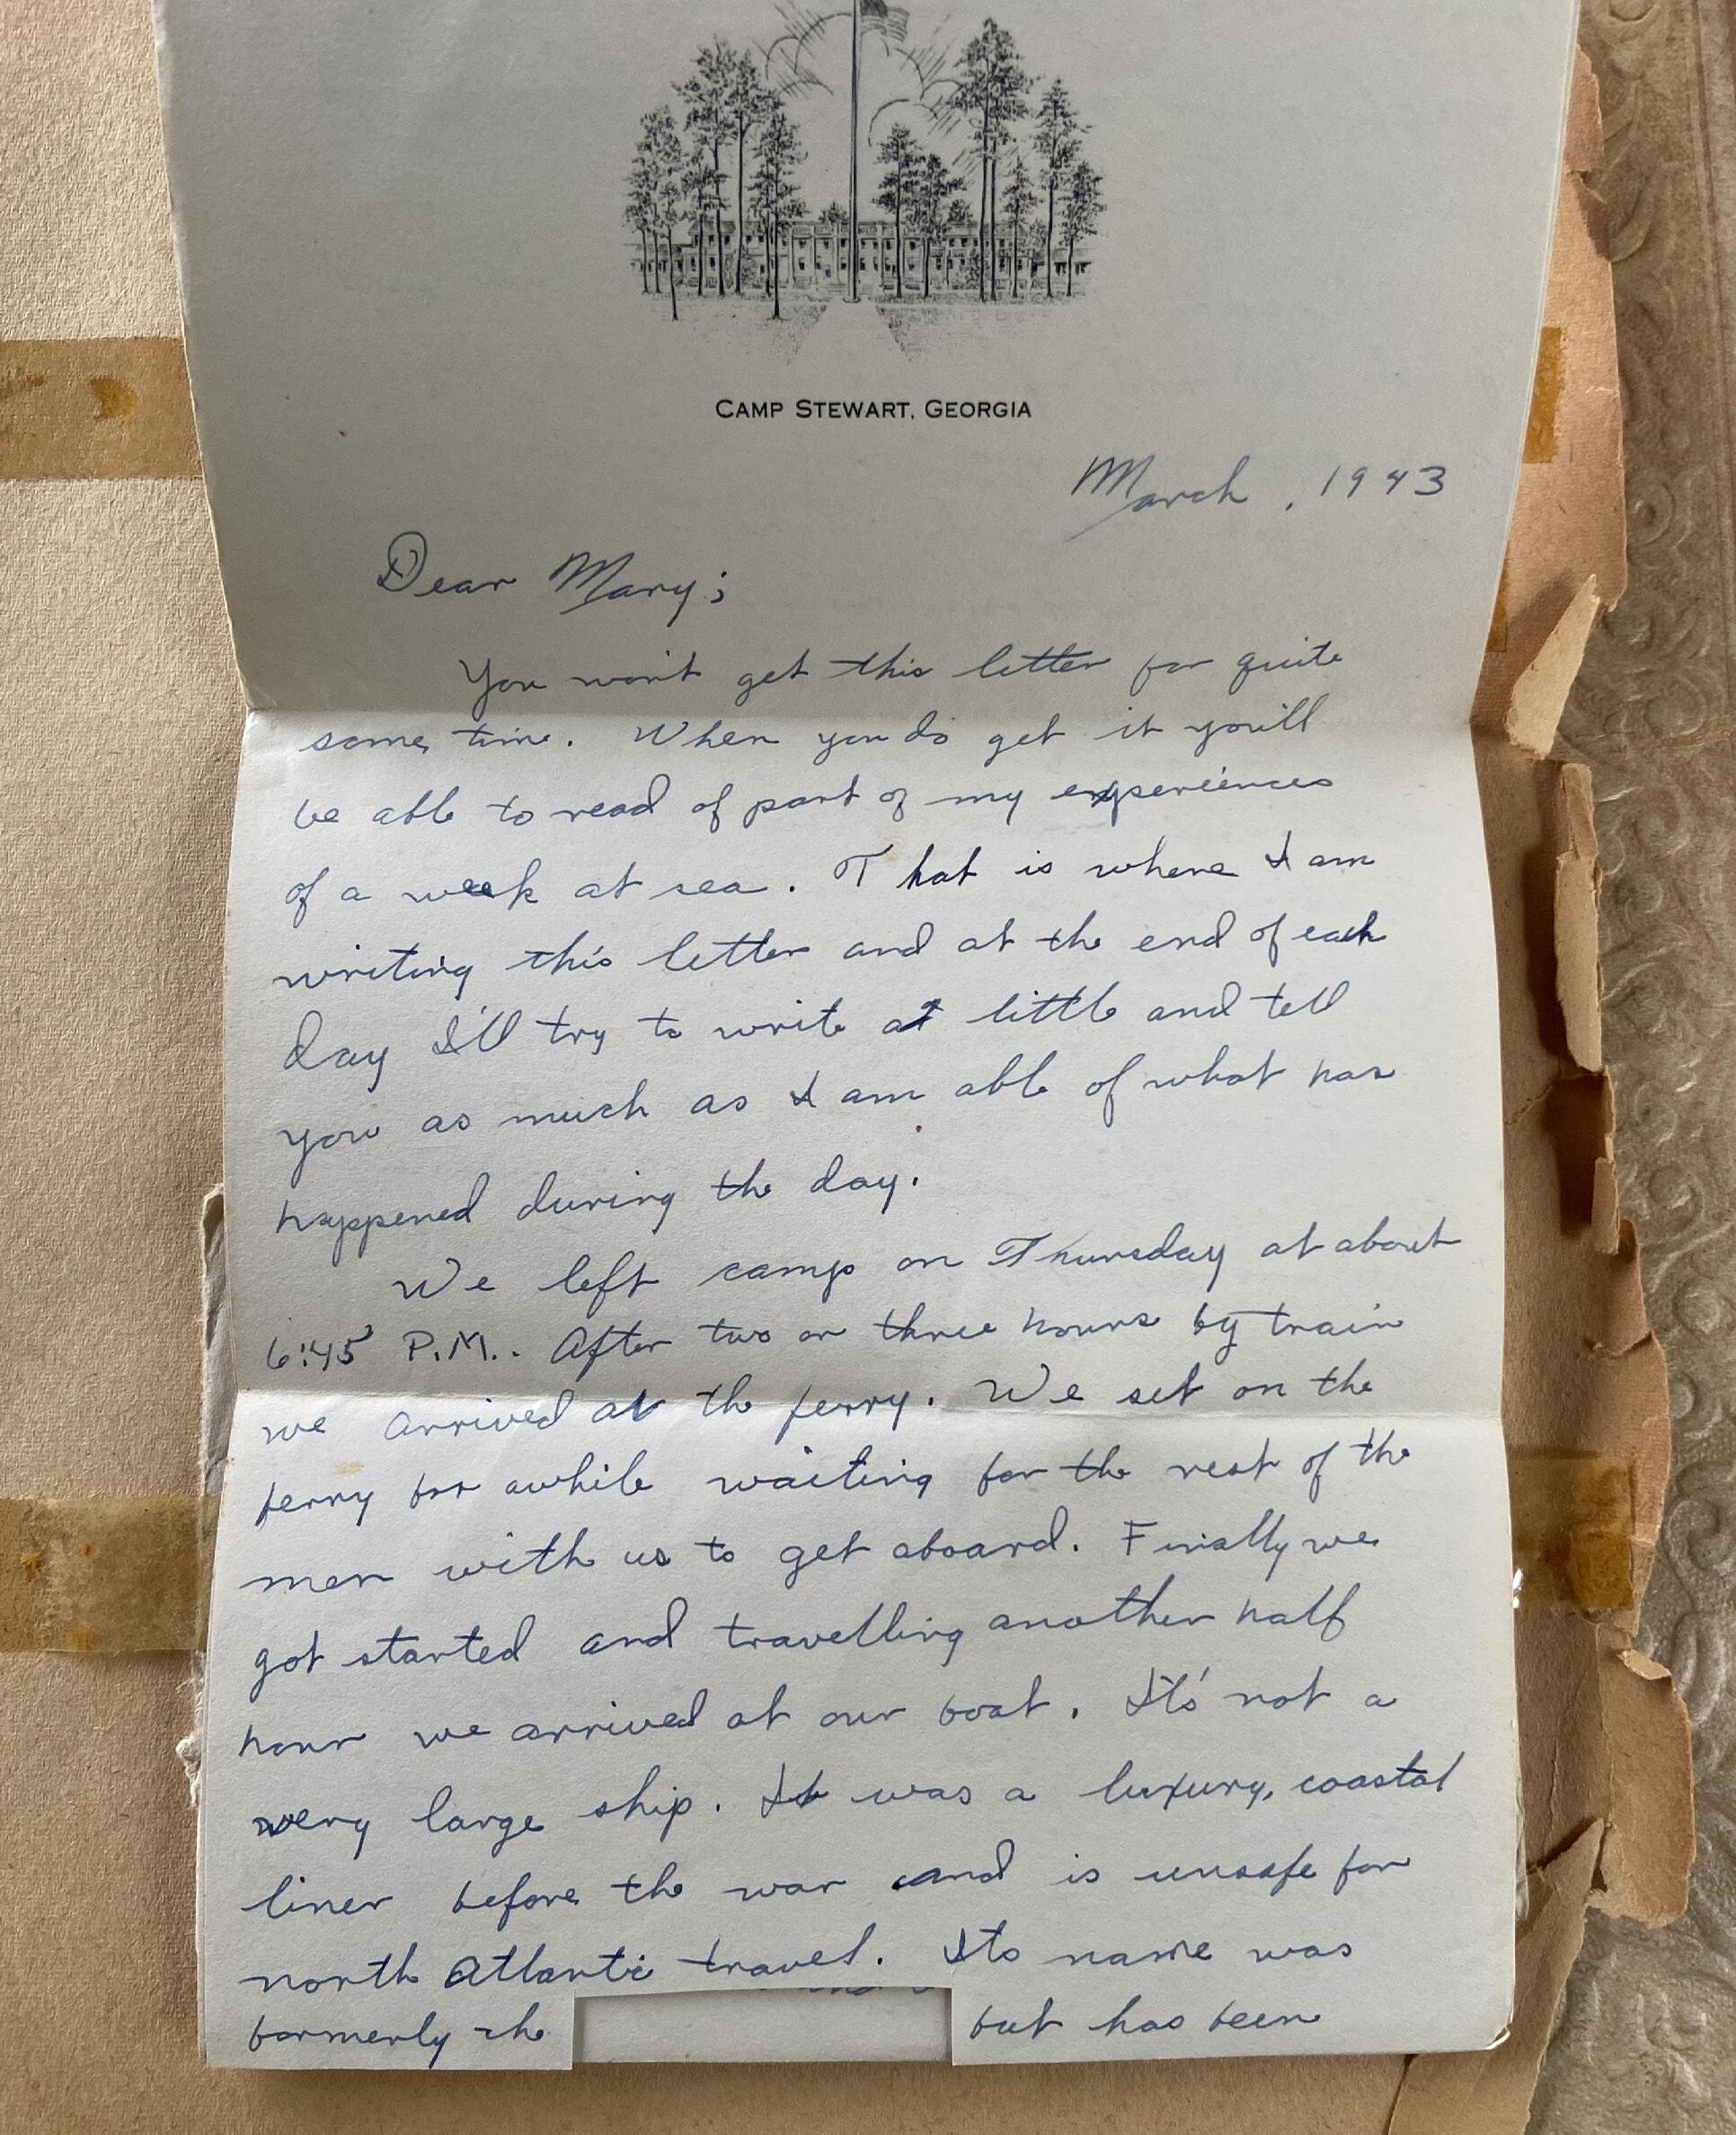 CAMP STEWART, GEORGIA
March , 1943
Dear Mary;
You won't get this letter for quite
some time. When you do get it you'll
be able to read of part of my experiences
of a week at sea. That is where I am
writing this letter and at the end of each
day I'll try to write at little and tell
you as much as I am able of what has
happened during the day.
We left camp on Thursday at about
6:45 P.M.. After two or three hours by train
we arrived at the ferry. We set on the
ferry for awhile waiting for the rest of the
men with us to get aboard. Finally we
got started and travelling another half
hour we arrived at our boat. It's not a
very large ship. It was a luxury, coastal
liner before the war and is unsafe for
north Atlantic travel. Its name was
formerly the but has been